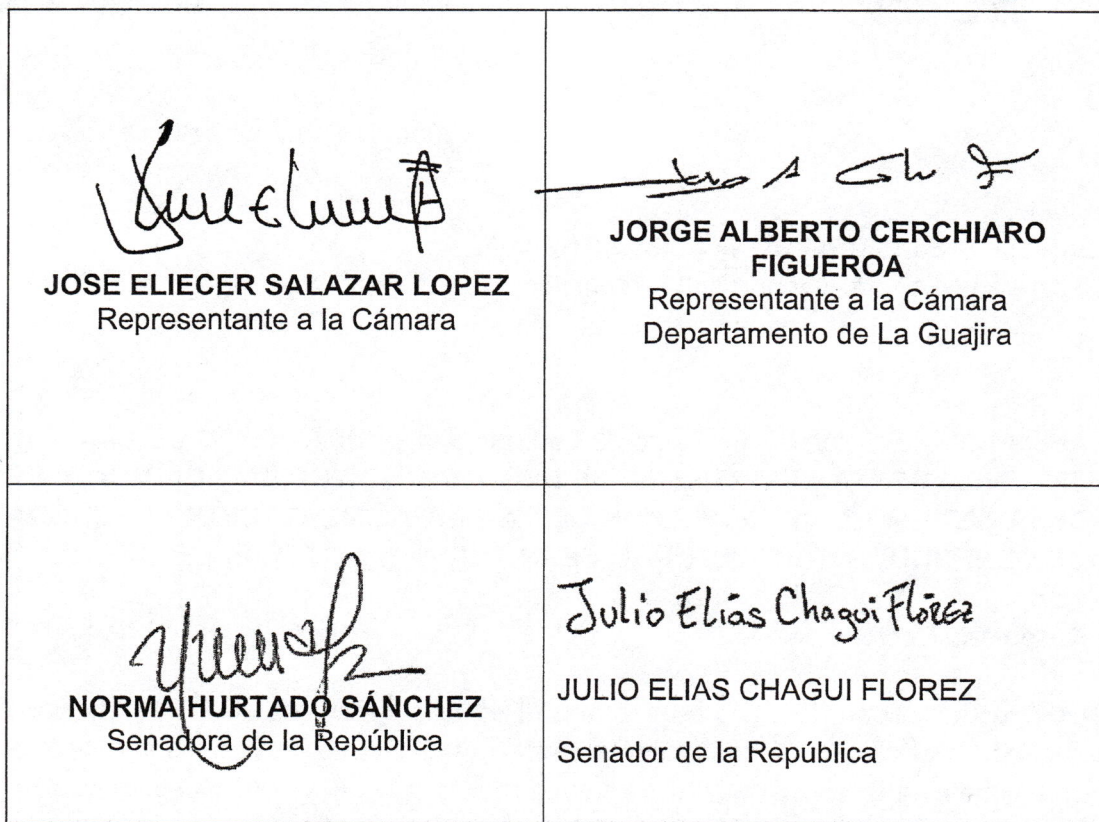 JOSE ELIECER SALAZAR LOPEZ
Representante a la Cámara
JORGE ALBERTO CERCHIARO
FIGUEROA
Representante a la Cámara
Departamento de La Guajira
NORMA HURTADO SÁNCHEZ
Senadora de la República
Julio Elias Chagui Flórez
JULIO ELIAS CHAGUI FLOREZ
Senador de la República